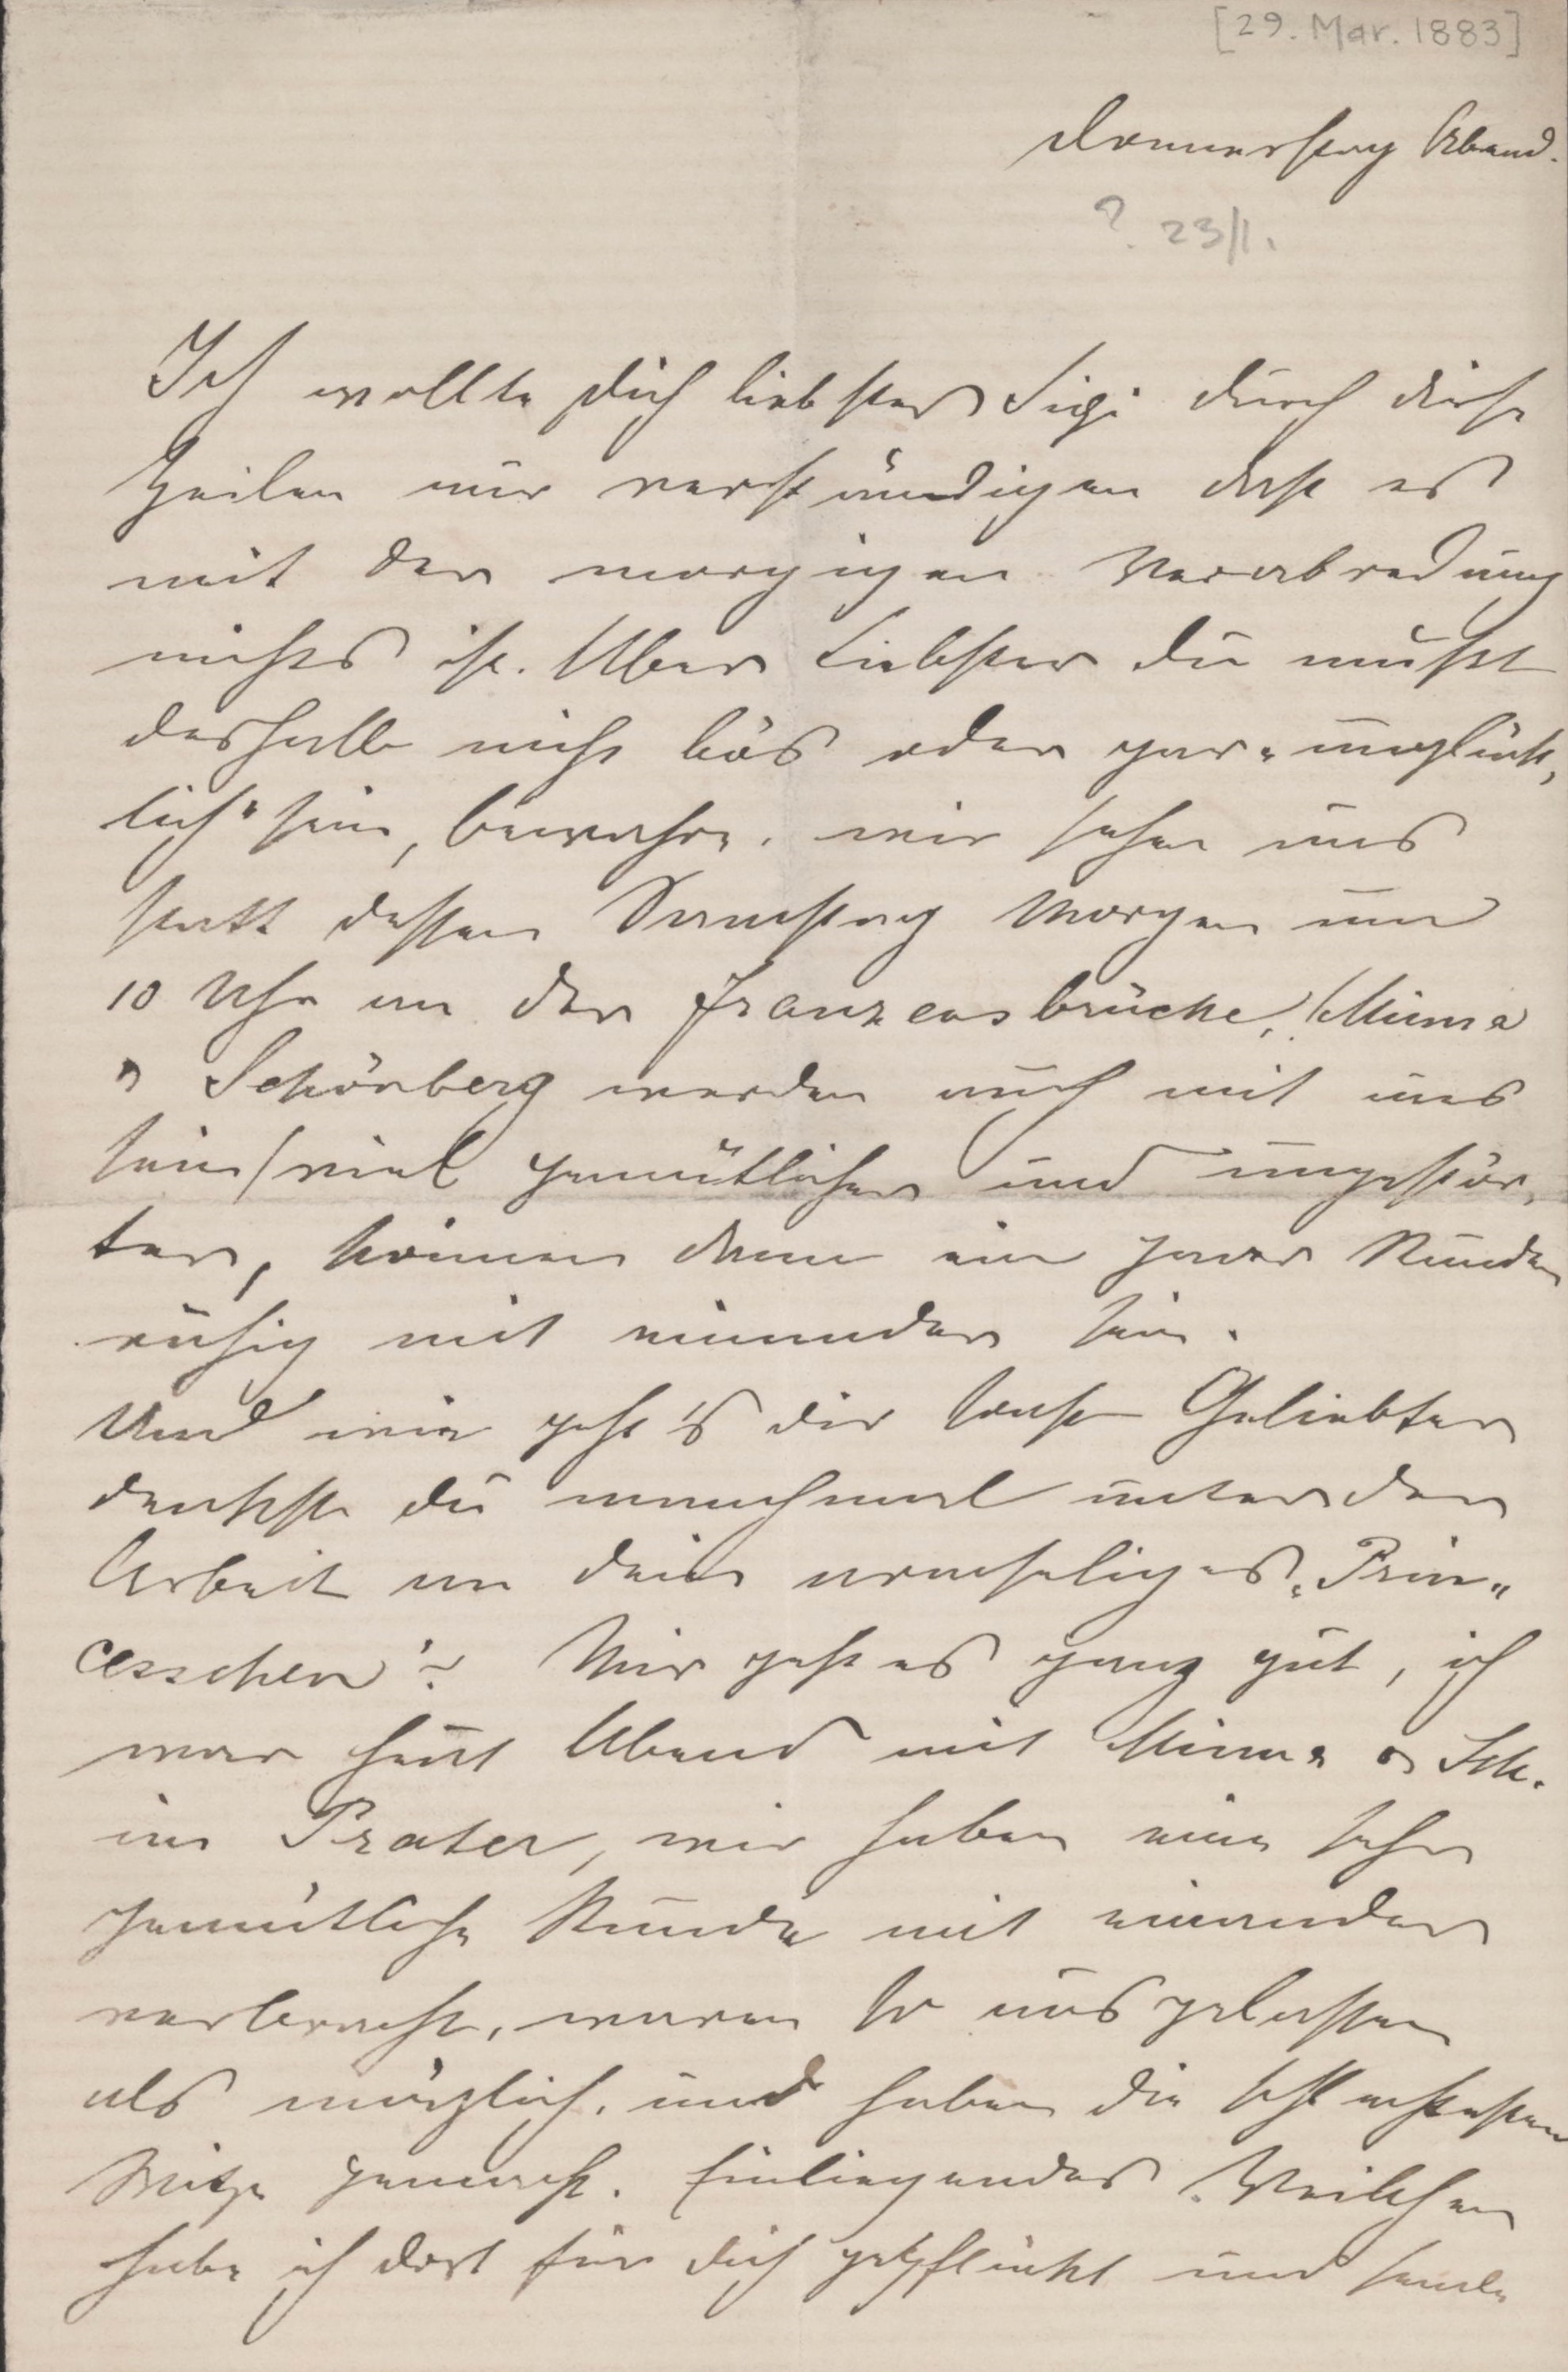 [29. Mar. 1883]
Donnerstag Abend.
? 23/1.
Ich wollte dich liebster Sigi durch diese
Zeilen nur verständigen daß es
mit der morgigen Verabredung
nichts ist. Aber Liebster du mußt
deshalb nicht bös oder gar „unglück,
lich" sein, bewahre. wir sehen uns
statt dessen Samstag Morgen um
10 Uhr an der Franzensbrücke, Minna
& Schönberg werden auch mit uns
sein, viel gemütlicher und ungestör,
ter, können dann ein paar Stunden
ruhig mit einander sein.
Und wie geht's dir sonst Geliebter
denkst du manchmal unter der
Arbeit an dein armseliges „Prin„
cesschen"? Mir geht es ganz gut, ich
war heut Abend mit Minna & Sch.
im Prater, wir haben eine sehr
gemütliche Stunde mit einander
verbracht, waren so ausgelassen
als möglich. und haben die schlechtesten
Witze gemacht. Einliegendes Veilchen
habe ich dort für dich gepflückt und sende